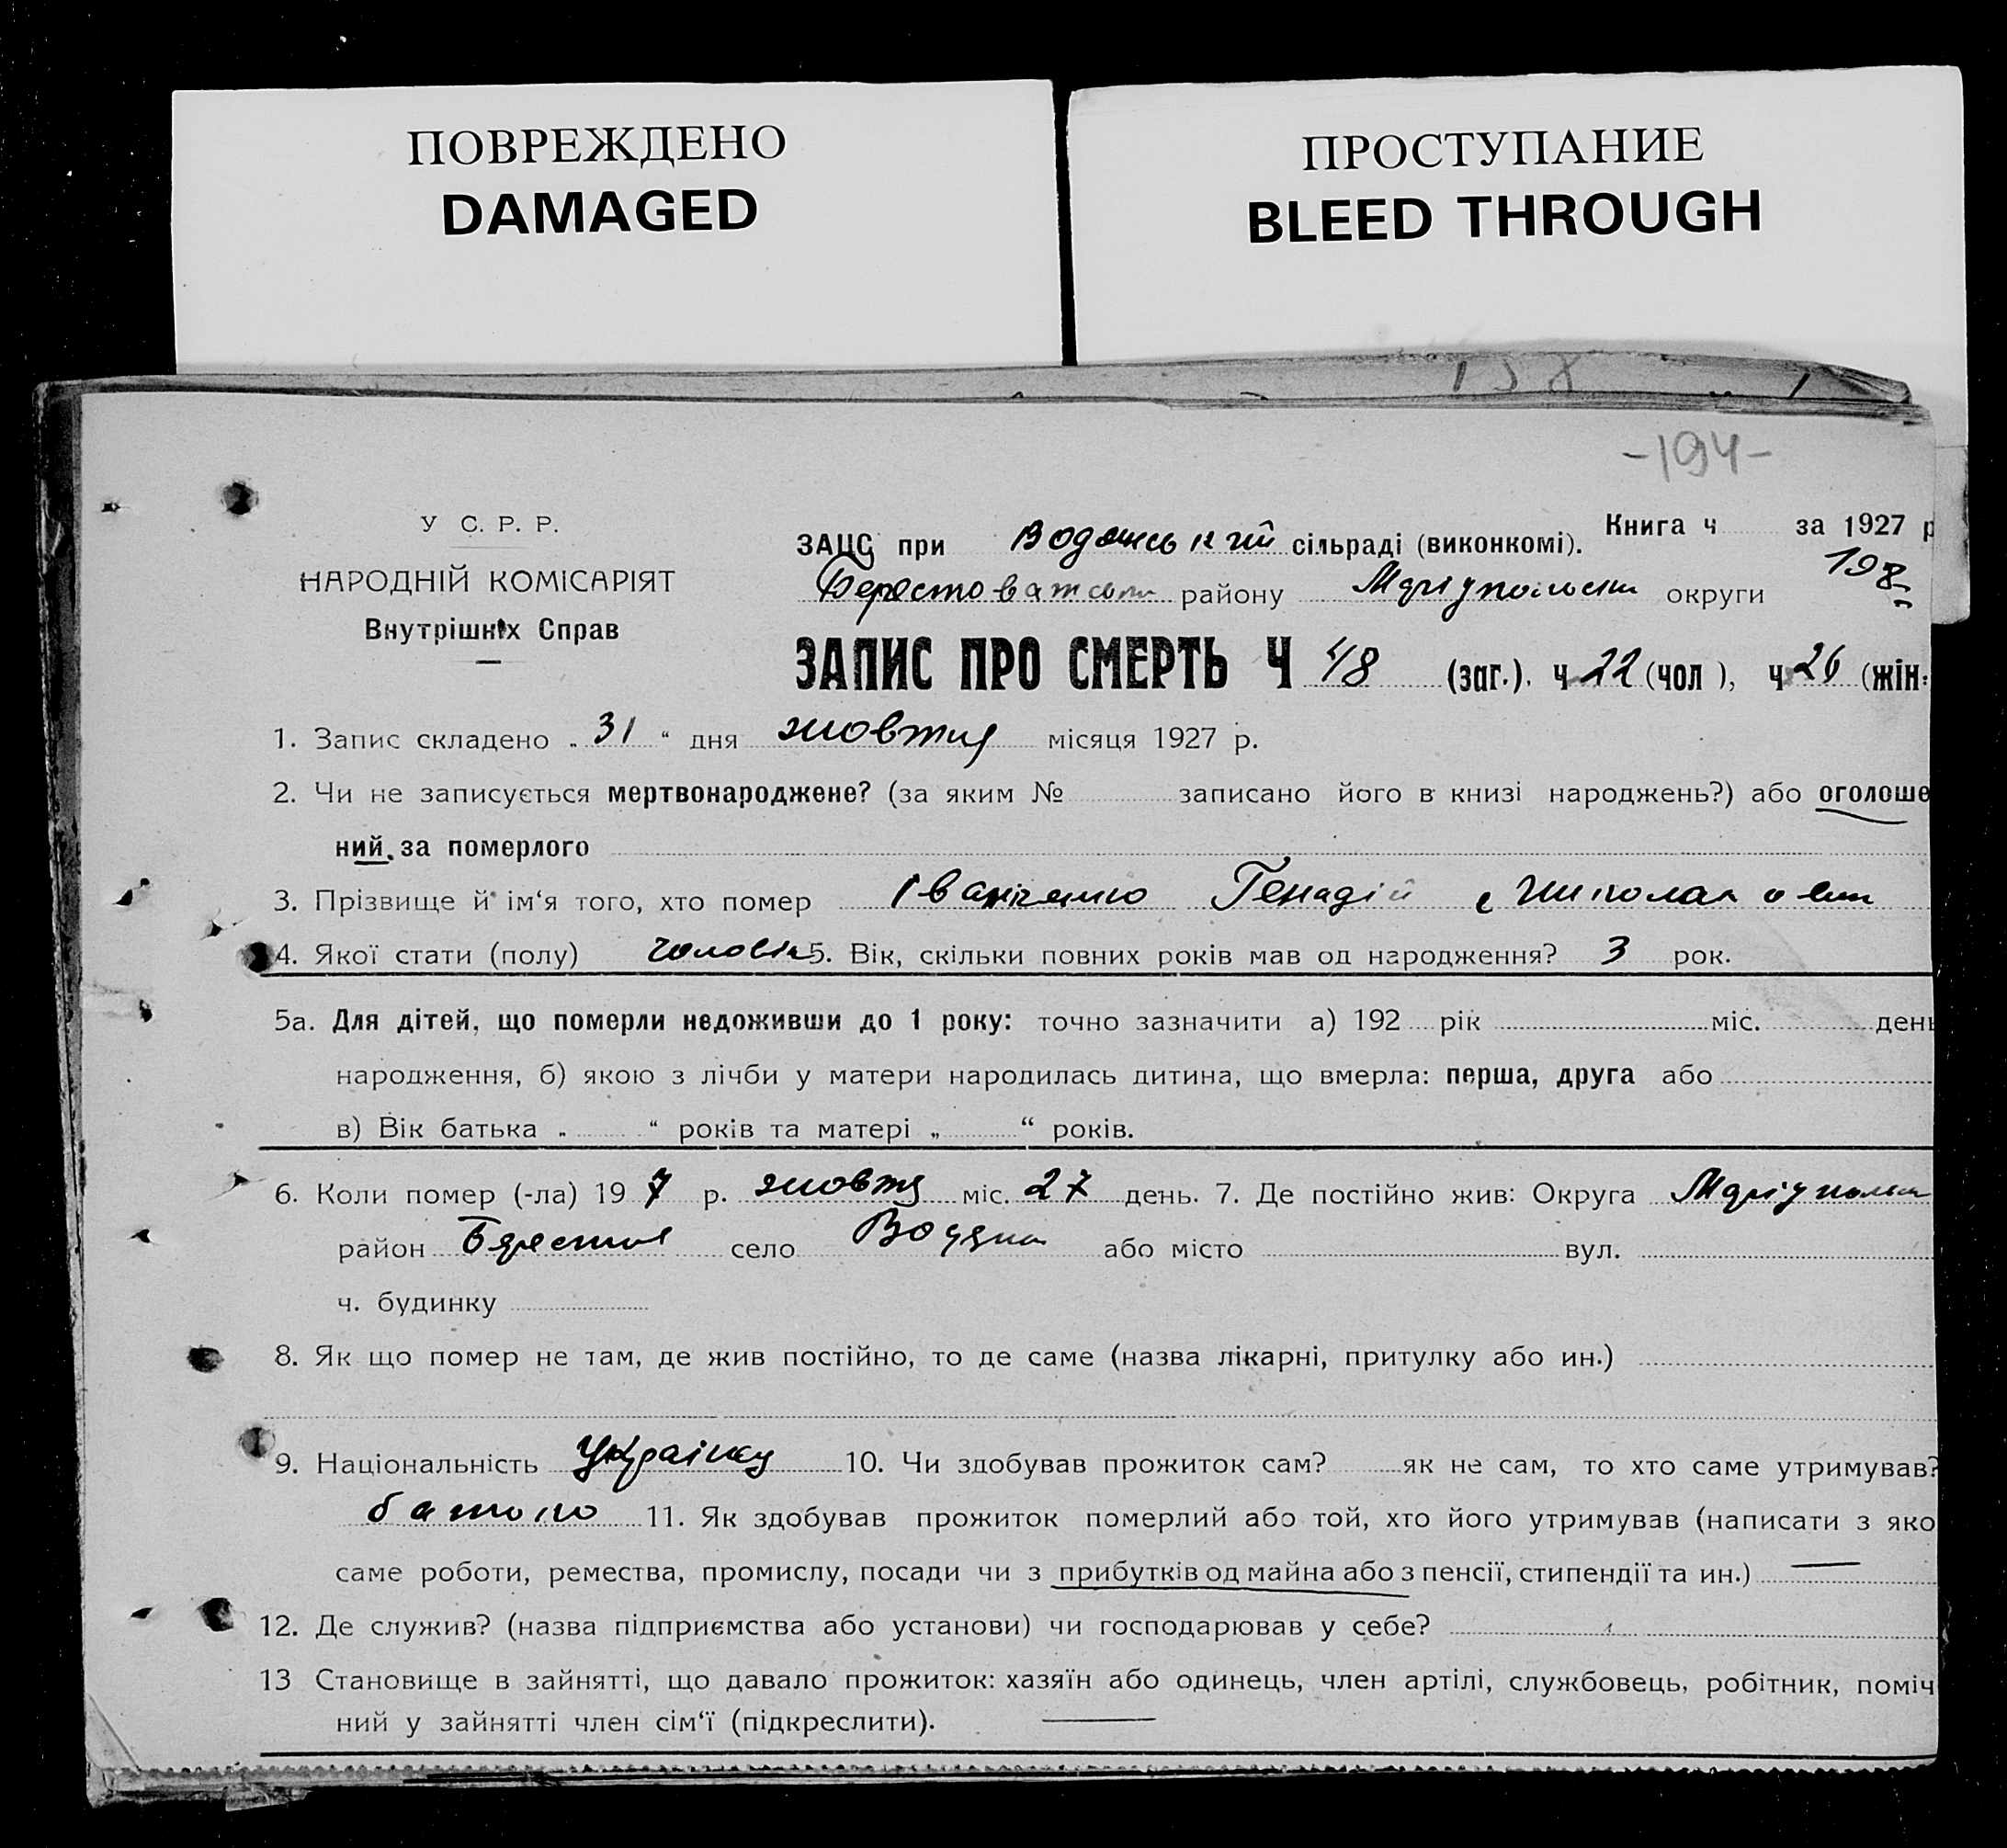 ПОВРЕЖДЕНО
DAMAGED
ПРОСТУПАНИЕ
BLEED THROUGH
-194-
У С. Р. Р.
НАРОДНІЙ КОМІСАРІЯТ
Внутрішніх Справ
Книга ч за 1927 р
198
ЗАЦС при сільраді (виконкомі).
району округи
ЗАПИС ПРО СМЕРТЬ Ч 48 (заг.). ч 22 (чол ), ч 26 (жін.
1. Запис складено „ 31 “ дня жовтня місяця 1927 р.
2. Чи не записується мертвонароджене? (за яким № записано його в книзі народжень?) або оголоше
ний за померлого
3. Прізвище й ім‘я того, хто помер Генадій
4. Якої стати (полу) чоловік 5. Вік, скільки повних років мав од народження? 3 рок.
5а. Для дітей, що померли недоживши до 1 року: точно зазначити а) 192 рік міс. день
народження, б) якою з лічби у матери народилась дитина, що вмерла: перша, друга або
в) Вік батька „ “ років та матері „ “ років.
6. Коли помер (-ла) 19 7 р. жовтя міс. 27 день. 7. Де постійно жив: Округа
район село або місто вул.
ч. будинку
8. Як що помер не там, де жив постійно, то де саме (назва лікарні, притулку або ин.)
9. Національність 10. Чи здобував прожиток сам? як не сам, то хто саме утримував?
батько 11. Як здобував прожиток померлий або той, хто його утримував (написати з яко
саме роботи, ремества, промислу, посади чи з прибутків од майна або з пенсії, стипендії та ин.) —
12. Де служив? (назва підприємства або установи) чи господарював у себе?
13 Становище в зайнятті, що давало прожиток: хазяїн або одинець, член артілі, службовець, робітник, поміч
ний у зайнятті член сім‘ї (підкреслити). —